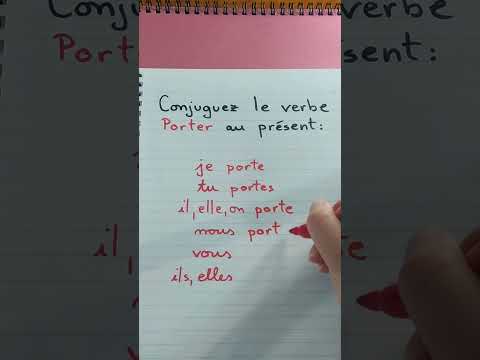 Conjuguez le verbe
Porter au présent:
je porte
tu portes
il, elle, on porte
nous port
vous
ils, elles